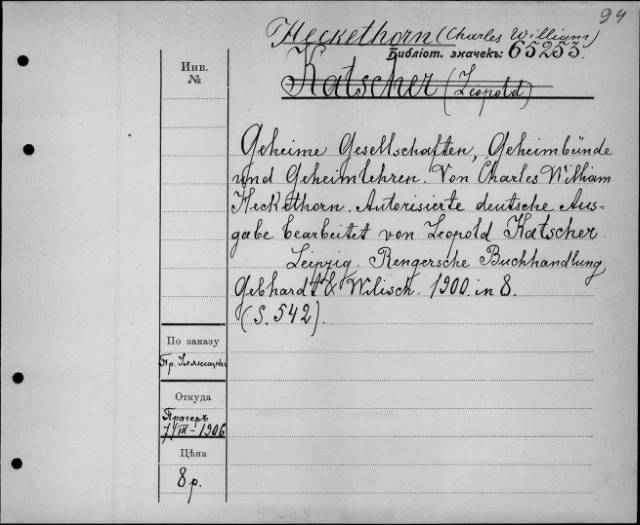 94
Heckethorn (Charles William)
Библіот. значекъ: 65253.
Katscher (Leopold)
Инв.
№
Geheime Gesellschaften, Geheimbünde
und Geheimlehren. Von Charles William
Heckethorn. Autorisierte deutsche Aus-
gabe bearbeitet von Leopold Katscher.
Leipzig. Rengersche Buchhandlung
Gebhardt & Wilisch. 1900. in 8.
(S. 542).
По заказу
Пр.
Откуда
Прагеръ
7/III - 1906
Цѣна
8 р.